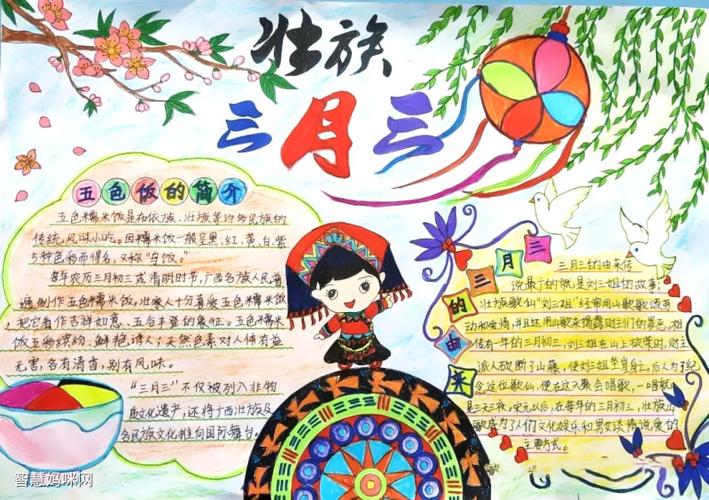 壮族
三月三
五色饭的简介
五色糯米饭是布依族、壮族等许多民族的
传统风味小吃。因糯米饭一般呈黑、红、黄、白、紫
5种色彩而得名，又称"乌饭"。
每年农历三月初三或清明节时，广西各族人民普
遍制作五色糯米饭。壮家人十分喜爱五色糯米饭
，把它看作吉祥如意、五谷丰登的象征。五色糯米
饭五彩缤纷，鲜艳诱人；天然色素对人体有益
无害，各有清香，别有风味。
"三月三"不仅被列入非物
质文化遗产，还将广西壮族及
各民族文化推向国际舞台。
三月三的由来
三月三的由来传
说最广的就是刘三姐的故事，
壮族歌仙"刘三姐"经常用山歌歌颂劳
动和爱情，并且还用山歌来揭露财主们的罪恶，相
传有一年的三月初三，刘三姐在山上砍柴时，财主
派人砍断了山藤，使刘三姐坠崖身亡，后人为了纪
念这位歌仙，便在这天聚会唱歌，一唱就
是三天三夜。宋元以后，在每年的三月初三，壮族山
歌成为了人们文化娱乐和男女谈情说爱的
主要方式。
智慧妈咪网